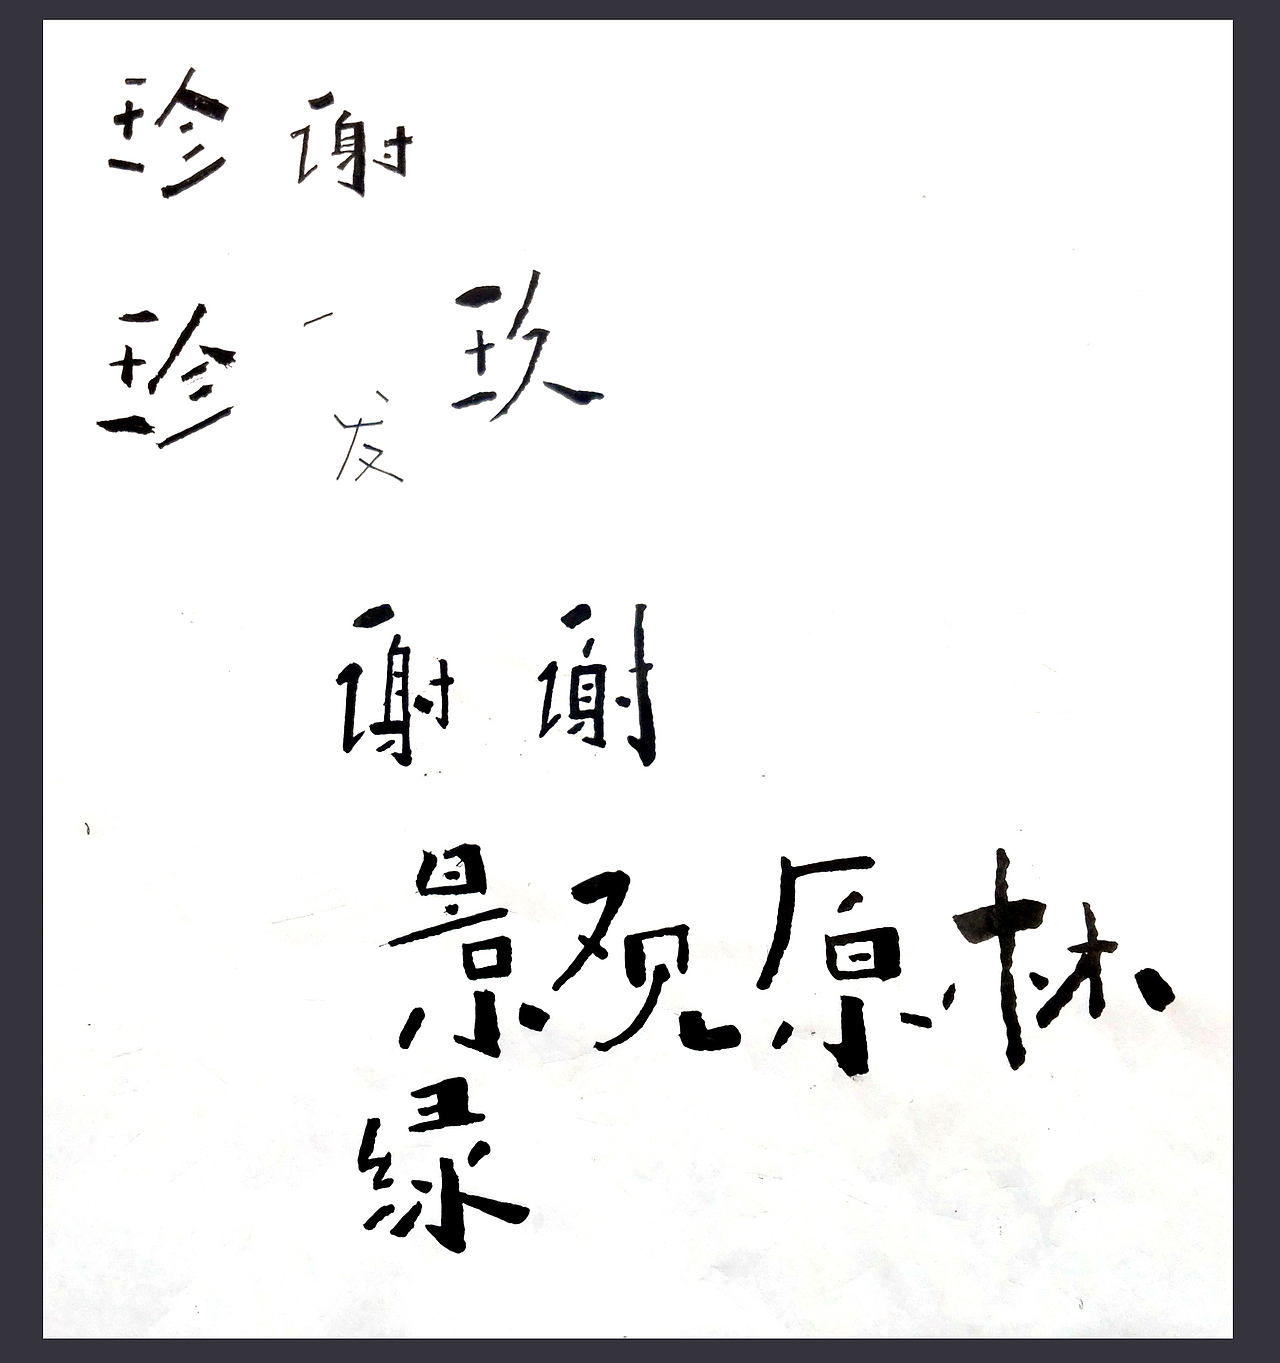 珍谢
珍一玖
发
谢谢
景观原林
绿